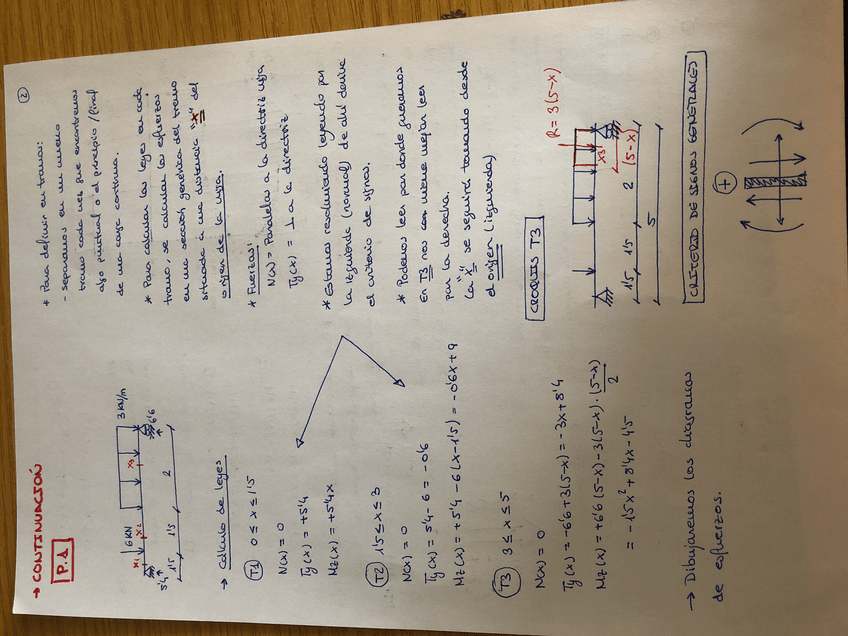 → CONTINUACIÓN
P.1
6 KN
3 KN/m
x1
x2
x3
5'4
6'6
1'5
1'5
2
→ Cálculo de leyes
T1 0 ≤ x ≤ 1'5
N(x) = 0
Ty(x) = +5'4
Mz(x) = +5'4x
T2 1'5 ≤ x ≤ 3
N(x) = 0
Ty(x) = 5'4 - 6 = -0'6
Mz(x) = +5'4 - 6(x-1'5) = -0'6x + 9
T3 3 ≤ x ≤ 5
N(x) = 0
Ty(x) = -6'6 + 3(5-x) = -3x + 8'4
Mz(x) = +6'6 (5-x) - 3(5-x) · (5-x)/2
= -1'5x² + 8'4x - 4'5
→ Dibujaremos los diagramas
de esfuerzos.
2
* Para definir en tramos:
- separamos en un nuevo
tramo cada vez que encontremos
algo puntual o el principio / final
de una carga continua.
* Para calcular las leyes en cada
tramo, se calculan los esfuerzos
en una sección genérica del tramo
situada a una distancia "x" del
origen de la viga.
* Fuerzas:
N(x) = Paralelas a la directriz viga
Ty(x) = ⊥ a la directriz
* Estamos resolviendo leyendo por
la izquierda (normal) de ahí derive
el criterio de signos.
* Podemos leer por donde queramos
En T3 nos conviene mejor leer
por la derecha.
La "x" se seguirá tomando desde
el origen (izquierda)
CROQUIS T3
R = 3(5-x)
x3
(5-x)
1'5
1'5
2
5
CRITERIO DE SIGNOS GENERALES
+